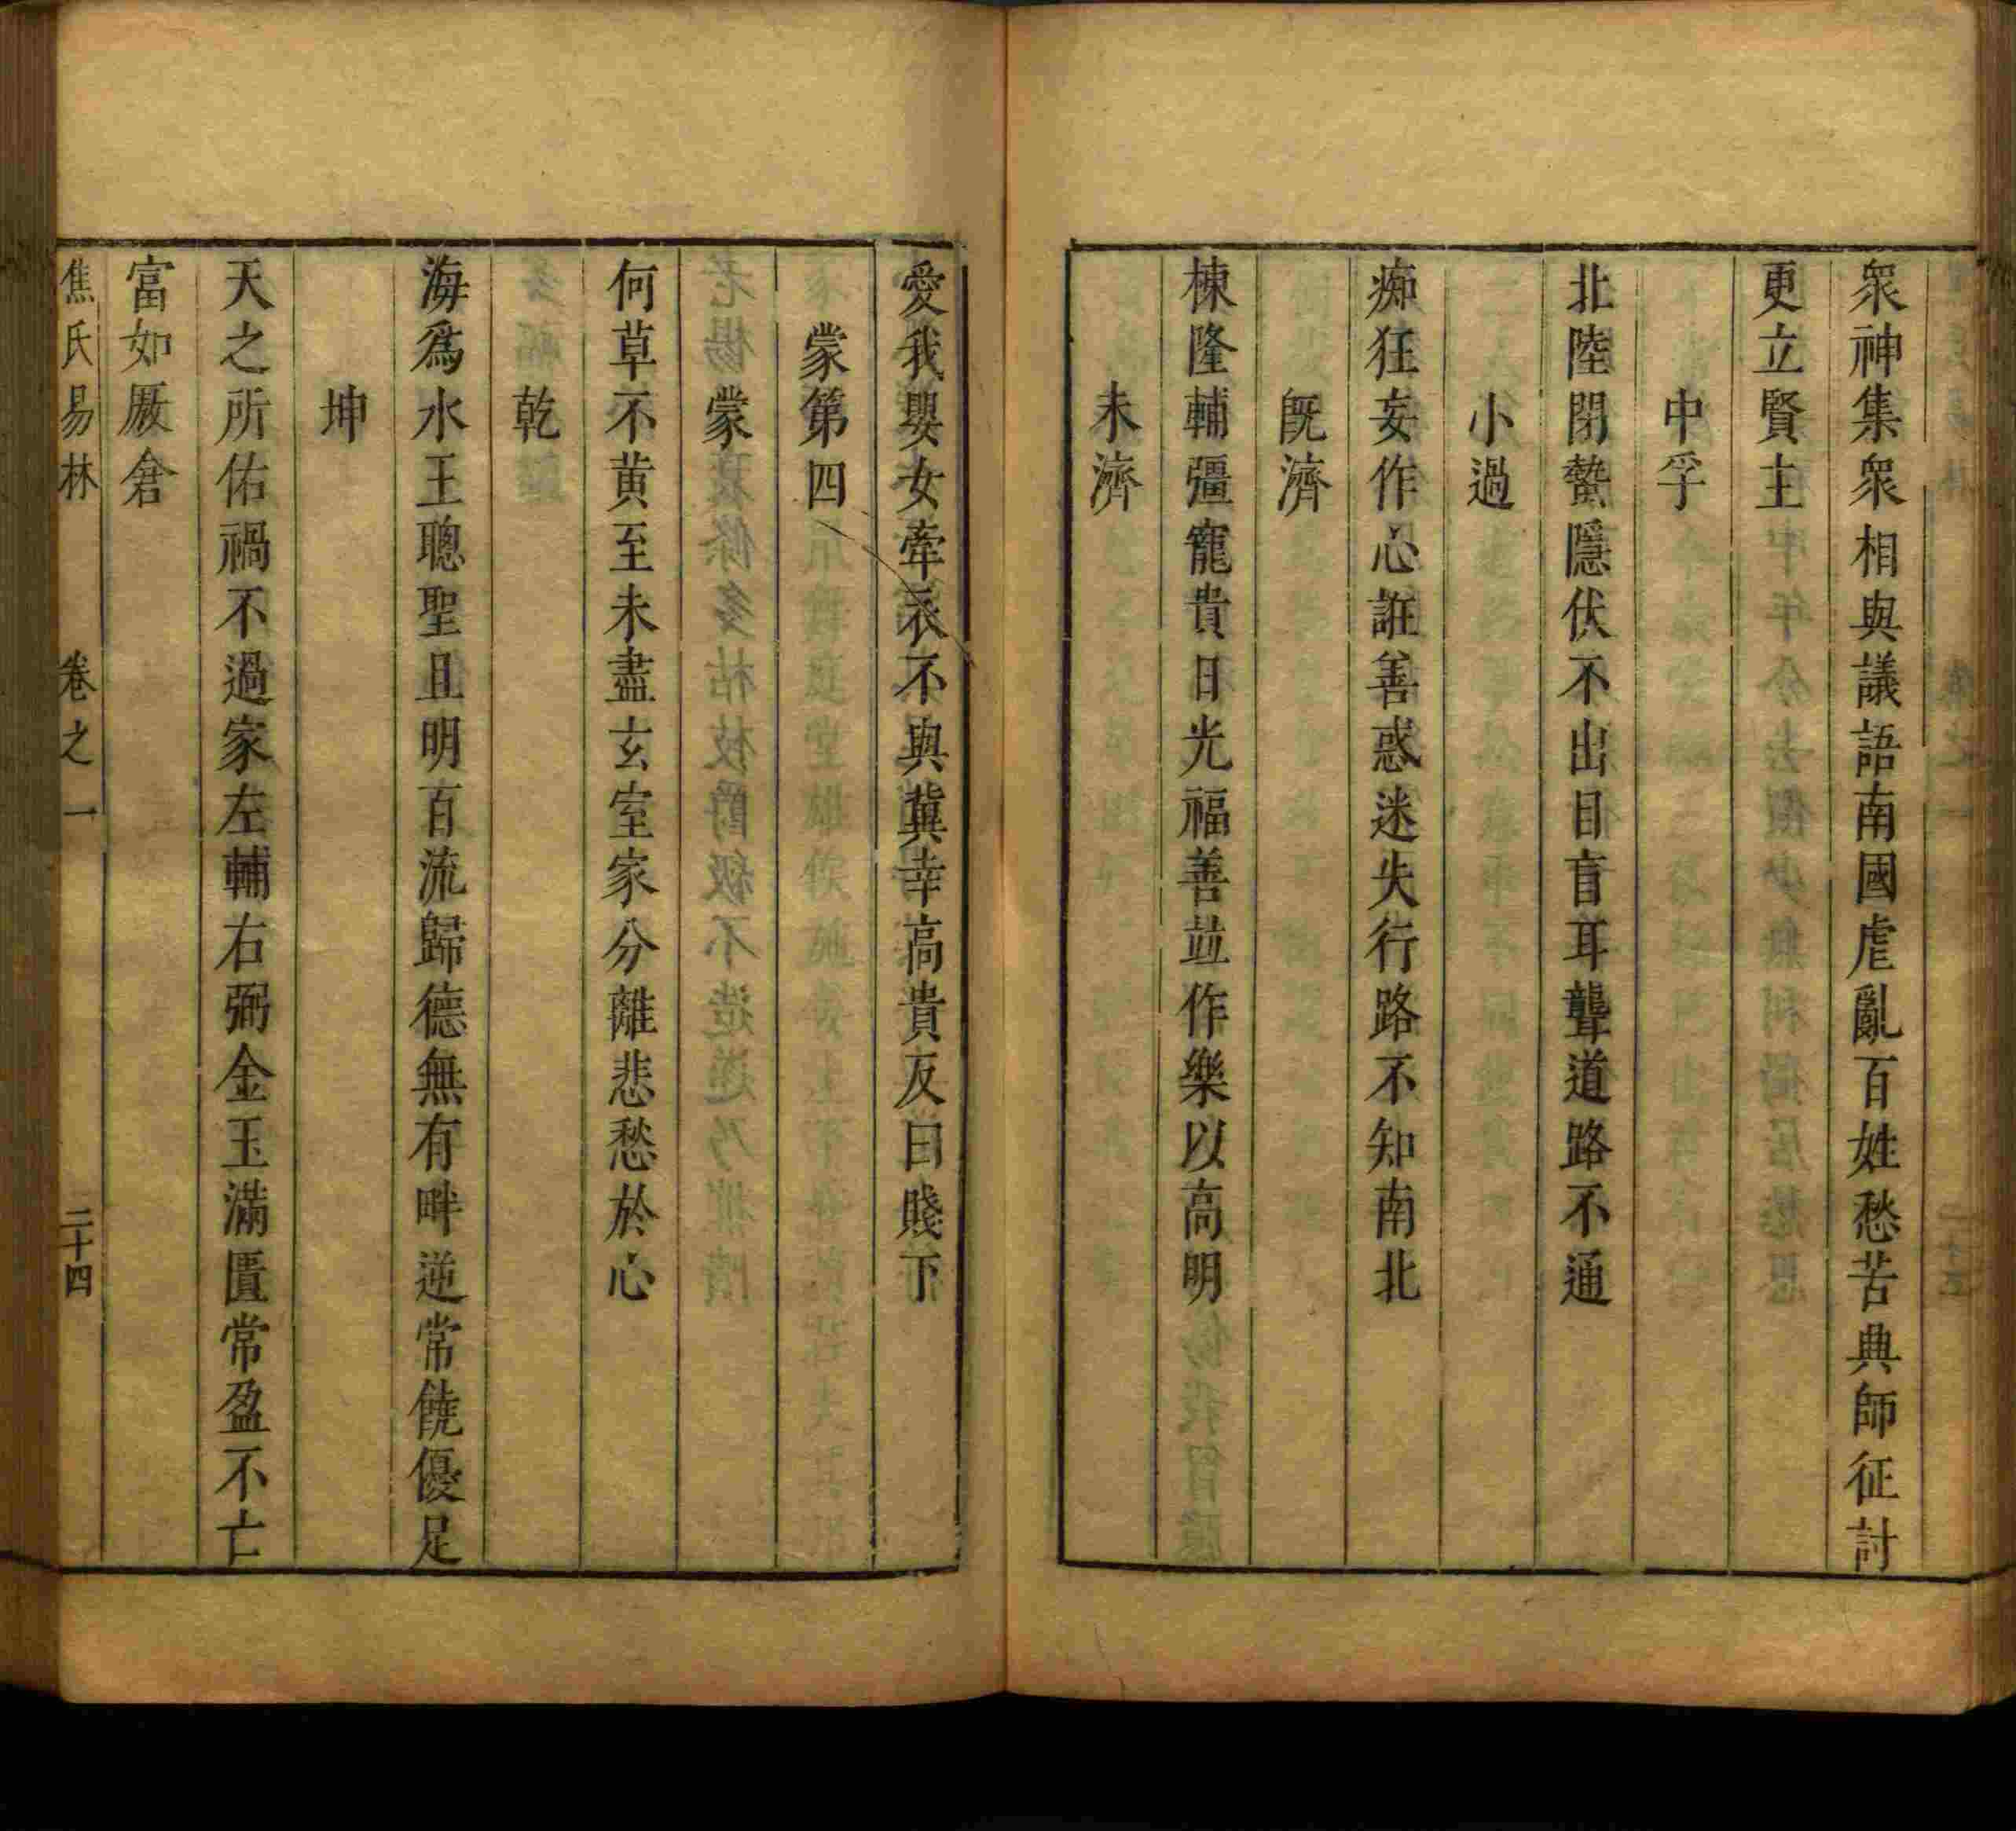 衆神集衆相與議語南國虐亂百姓愁苦典師征討
更立賢主
中孚
北陸閉蟄隱伏不出目盲耳聾道路不通
小過
痴狂妄作心誑善惑迷失行路不知南北
旣濟
棟隆輔彊寵貴日光福善並作樂以高明
未濟
愛我嬰女牽衣不與冀幸高貴反曰賤下
蒙第四
蒙
何草不黄至未盡玄室家分離悲愁於心
乾
海爲水王聰聖且明百流歸德無有畔逆常饒優足
坤
天之所佑禍不過家左輔右弼金玉滿匱常盈不亡
富如厫倉
焦氏易林 卷之一 二十四